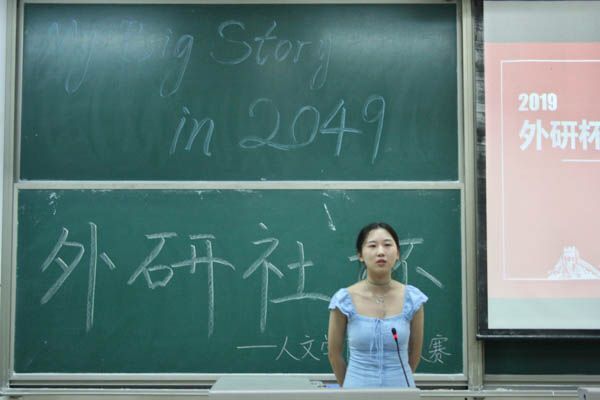 My Big Story
in 2049
外研社杯
—人文学 赛
2019
外研杯